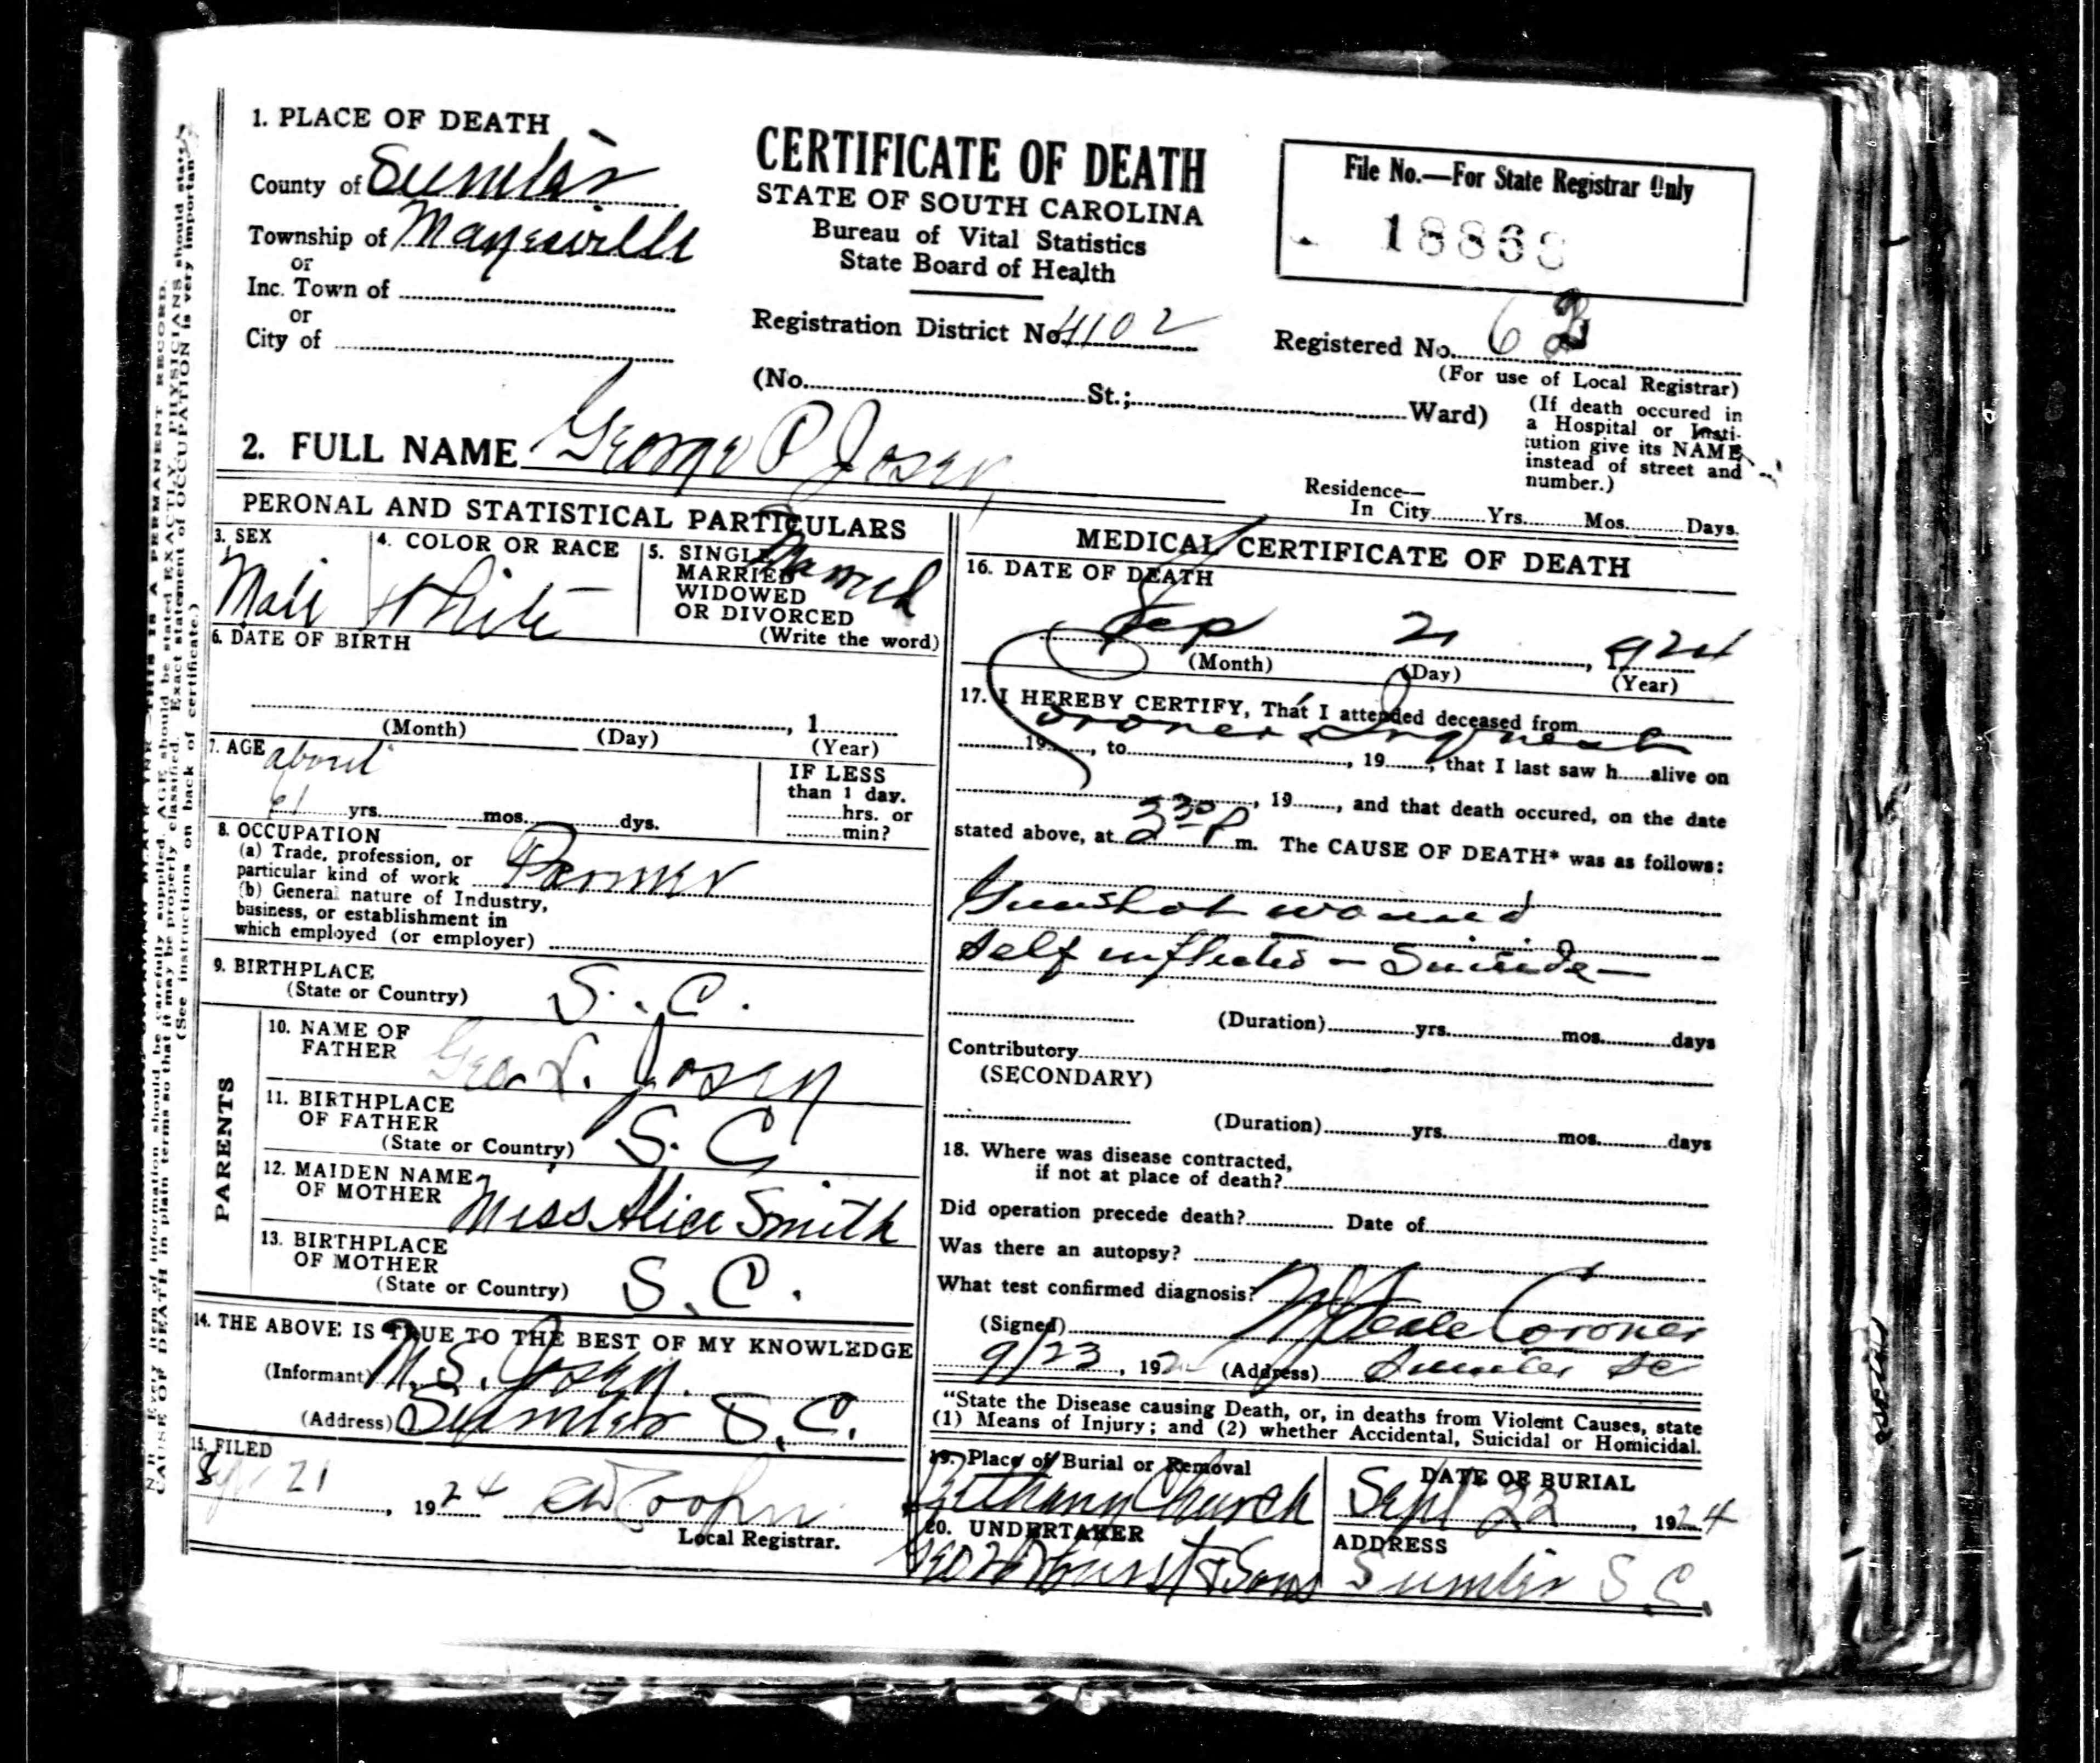 1. PLACE OF DEATH
County of Sumter
Township of Mayesville
or
Inc. Town of
or
City of
CERTIFICATE OF DEATH
STATE OF SOUTH CAROLINA
Bureau of Vital Statistics
State Board of Health
Registration District No. 4102
File No.—For State Registrar Only
Registered No. 62
(For use of Local Registrar)
(No. St.; Ward)
(If death occured in
a Hospital or Insti-
tution give its NAME
instead of street and
number.)
2. FULL NAME George P Josey
Residence—
In City Yrs. Mos. Days.
PERONAL AND STATISTICAL PARTICULARS
3. SEX
Male
4. COLOR OR RACE
White
5. SINGLE
MARRIED
WIDOWED
OR DIVORCED
(Write the word)
Married
6. DATE OF BIRTH
, 1
(Month) (Day) (Year)
7. AGE about
61 yrs. mos. dys.
IF LESS
than 1 day.
hrs. or
min?
8. OCCUPATION
(a) Trade, profession, or
particular kind of work Farmer
(b) General nature of Industry,
business, or establishment in
which employed (or employer)
9. BIRTHPLACE
(State or Country) S. C.
PARENTS
10. NAME OF
FATHER Geo. L. Josey
11. BIRTHPLACE
OF FATHER
(State or Country) S. C
12. MAIDEN NAME
OF MOTHER Miss Alice Smith
13. BIRTHPLACE
OF MOTHER
(State or Country) S. C.
14. THE ABOVE IS TRUE TO THE BEST OF MY KNOWLEDGE
(Informant) M. S. Josey.
(Address) Sumter S.C.
15. FILED
21, 1924
Local Registrar.
MEDICAL CERTIFICATE OF DEATH
16. DATE OF DEATH
Sep 21, 1924
(Month) (Day) (Year)
17. I HEREBY CERTIFY, That I attended deceased from
Coroners Inquest
19 , to , 19 , that I last saw h alive on
, 19 , and that death occured, on the date
stated above, at 330 P m. The CAUSE OF DEATH* was as follows:
Gunshot wound
Self inflicted - Suicide -
(Duration) yrs. mos. days
Contributory
(SECONDARY)
(Duration) yrs. mos. days
18. Where was disease contracted,
if not at place of death?
Did operation precede death? Date of
Was there an autopsy?
What test confirmed diagnosis?
(Signed) Coroner
9/23, 192 (Address) Sumter SC
"State the Disease causing Death, or, in deaths from Violent Causes, state
(1) Means of Injury; and (2) whether Accidental, Suicidal or Homicidal.
19. Place of Burial or Removal
Bethany Church
DATE OF BURIAL
Sept 22, 1924
20. UNDERTAKER
Geo H Hurst & Sons
ADDRESS
Sumter S.C.